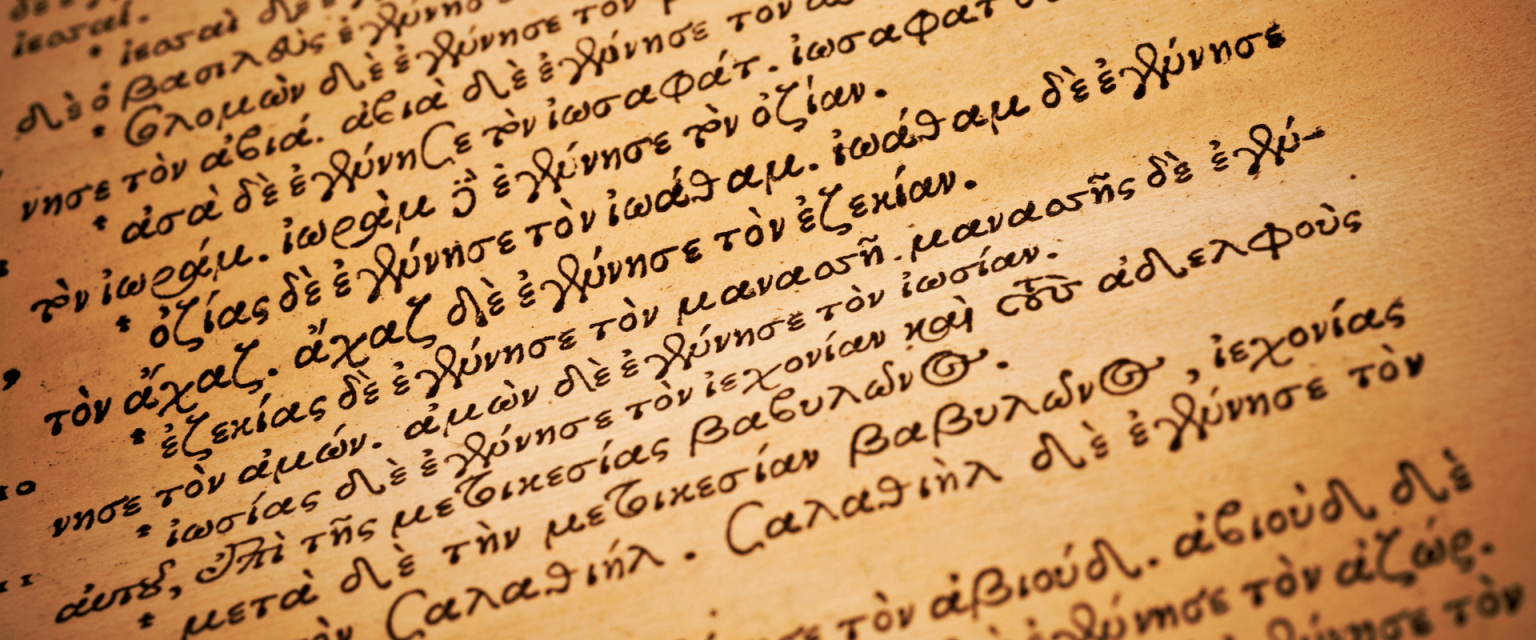 ἰεσσαί.
* ἰεσσαὶ δὲ
δὲ ὁ βασιλεὺς ἐγέννησε
* Σολομὼν δὲ ἐγέννησε τὸν
νησε τὸν ἀβιά. ἀβιὰ δὲ ἐγέννησε τὸν
* ἀσὰ δὲ ἐγέννησε τὸν ἰωσαφάτ. ἰωσαφὰτ
τὸν ἰωράμ. ἰωρὰμ δὲ ἐγέννησε τὸν ὀζίαν.
* ὀζίας δὲ ἐγέννησε τὸν ἰωάθαμ. ἰωάθαμ δὲ ἐγέννησε
τὸν ἄχαζ. ἄχαζ δὲ ἐγέννησε τὸν ἐζεκίαν.
* ἐζεκίας δὲ ἐγέννησε τὸν μανασσῆ. μανασσῆς δὲ ἐγέν-
10 νησε τὸν ἀμών. ἀμὼν δὲ ἐγέννησε τὸν ἰωσίαν.
* ἰωσίας δὲ ἐγέννησε τὸν ἰεχονίαν καὶ τοὺς ἀδελφοὺς
11 αὐτοῦ, ἐπὶ τῆς μετοικεσίας βαβυλῶνος.
* μετὰ δὲ τὴν μετοικεσίαν βαβυλῶνος, ἰεχονίας
Σαλαθιήλ. Σαλαθιὴλ δὲ ἐγέννησε τὸν
τὸν ἀβιούδ. ἀβιοὺδ δὲ
τὸν ἀζώρ.
τὸν